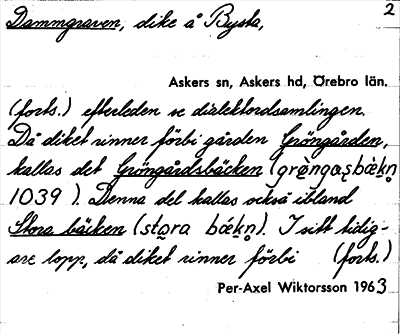 Dammgraven, dike å Bysta, 2
Askers sn, Askers hd, Örebro län.
(forts.) efterleden se dialektordsamlingen.
Då diket rinner förbi gården Gröngården,
kallas det Gröngårdsbäcken (
1039). Denna del kallas också ibland
Stora bäcken (). I sitt tidig-
are lopp, då diket rinner förbi (forts.)
Per-Axel Wiktorsson 1963